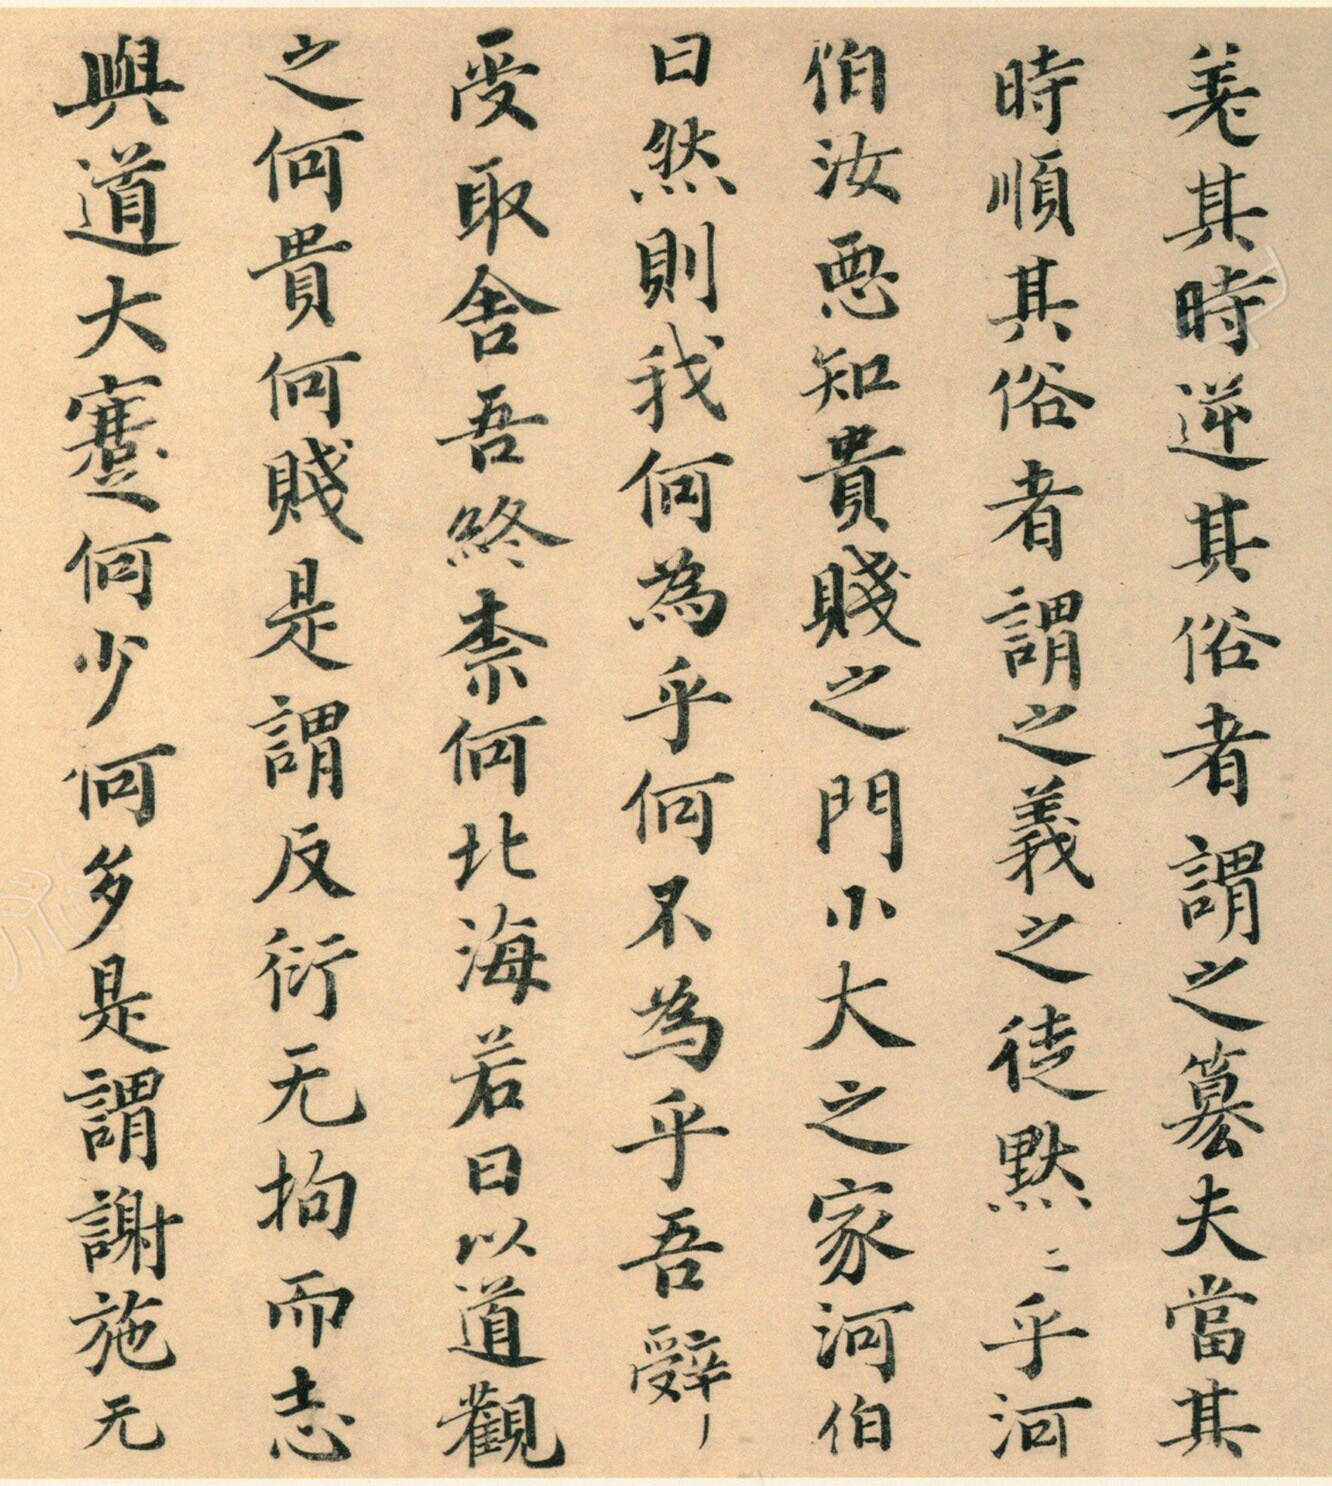 差其時逆其俗者謂之篡夫當其
時順其俗者謂之義之徒默〻乎河
伯汝惡知貴賤之門小大之家河伯
曰然則我何為乎何不為乎吾辭
受取舍吾終柰何北海若曰以道觀
之何貴何賤是謂反衍无拘而志
與道大蹇何少何多是謂謝施无